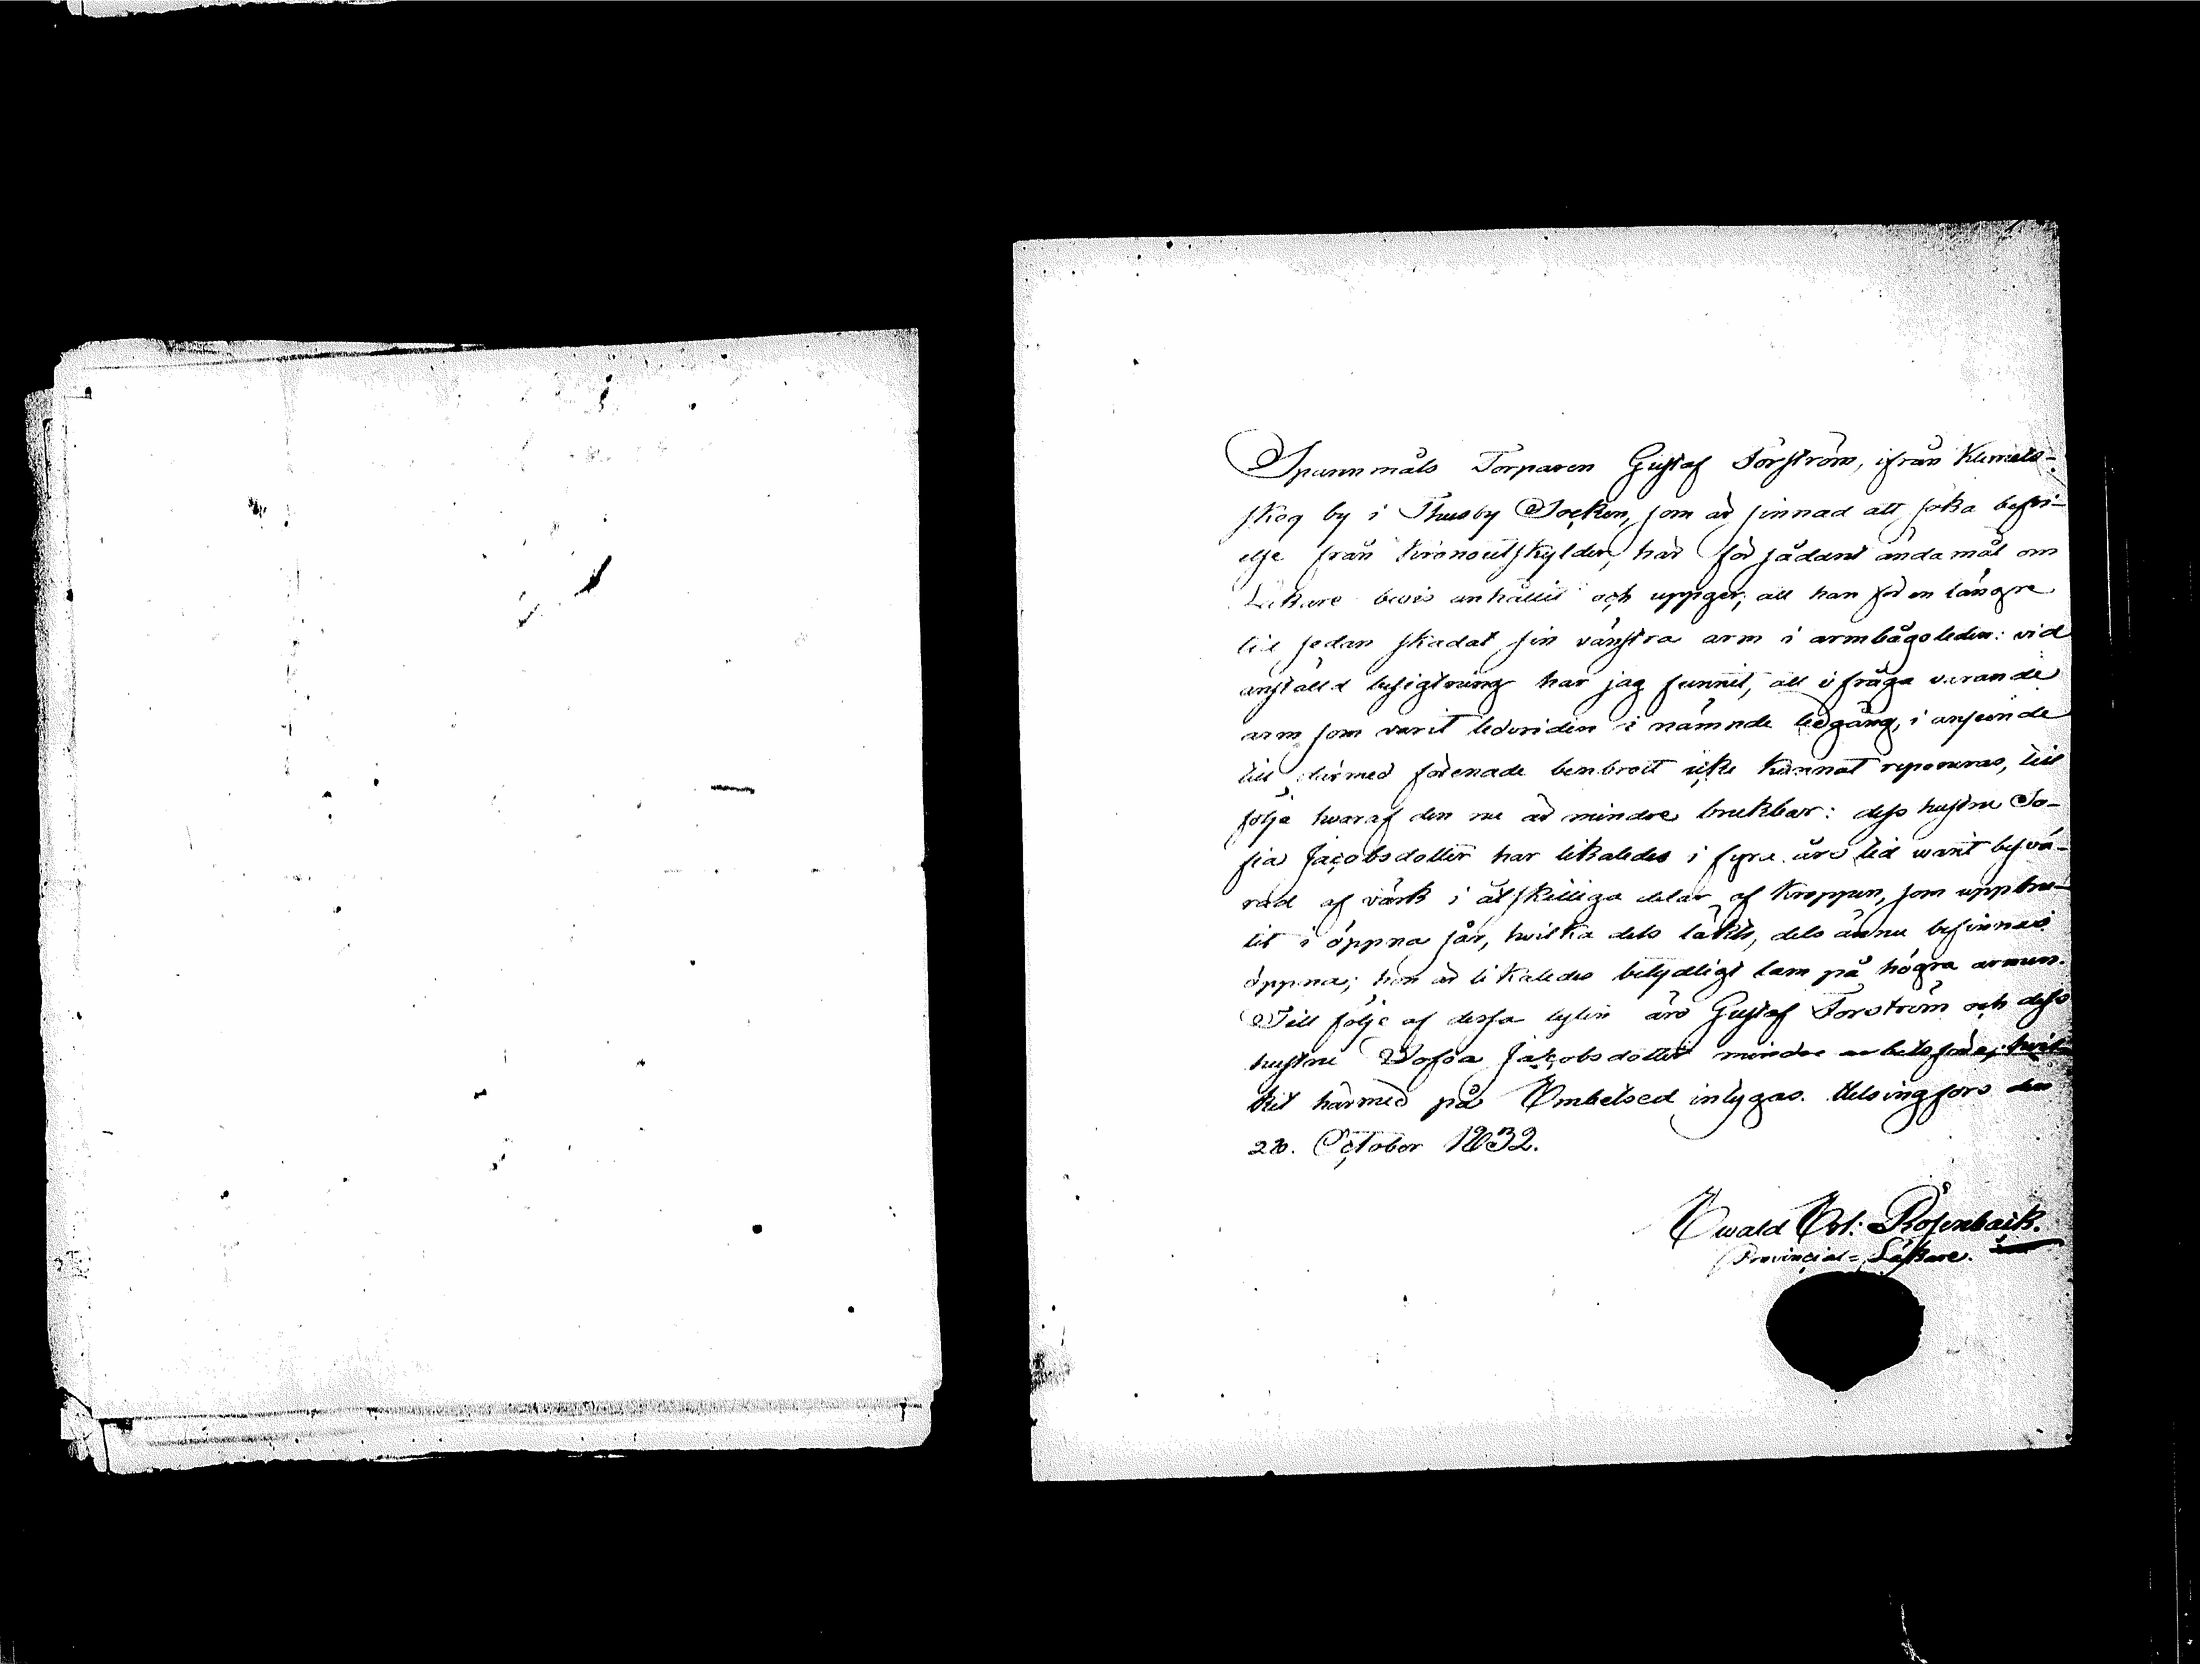 Spannmåls Torparen Gustaf Forström, ifrån Klemets-
skog by i Thusby Socken, som är sinnad att söka befri-
else från Kronoutskylder, har för sådant ändamål om
Läkare bevis anhållit och uppger, att han för en längre
tid sedan skadat sin vänstra arm i armbågsleden: vid
anställd besigtning har jag funnit, att ifråga varande
arm som varit ledvriden i nämnde ledgång, i anseende
till därmed förenade benbrott icke kunnat reponeras, till
följe hwaraf den nu är mindre brukbar: dess hustru So-
fia Jacobsdotter har likaledes i fyra års tid warit besvä-
rad af värk i åtskilliga delar af kroppen, som uppbru-
tit i öppna sår, hwilka dels läkts, dels ännu befinnas
öppna; hon är likaledes betydligt lam på högra armen.
Till följe af dessa lyten äro Gustaf Forström och dess
hustru Sofia Jacobsdotter mindre arbetsföra; hwil-
ket härmed på Embetsed intygas. Helsingfors den
October 1832.
Ewald Rosenback.
Provincial-Läkare.